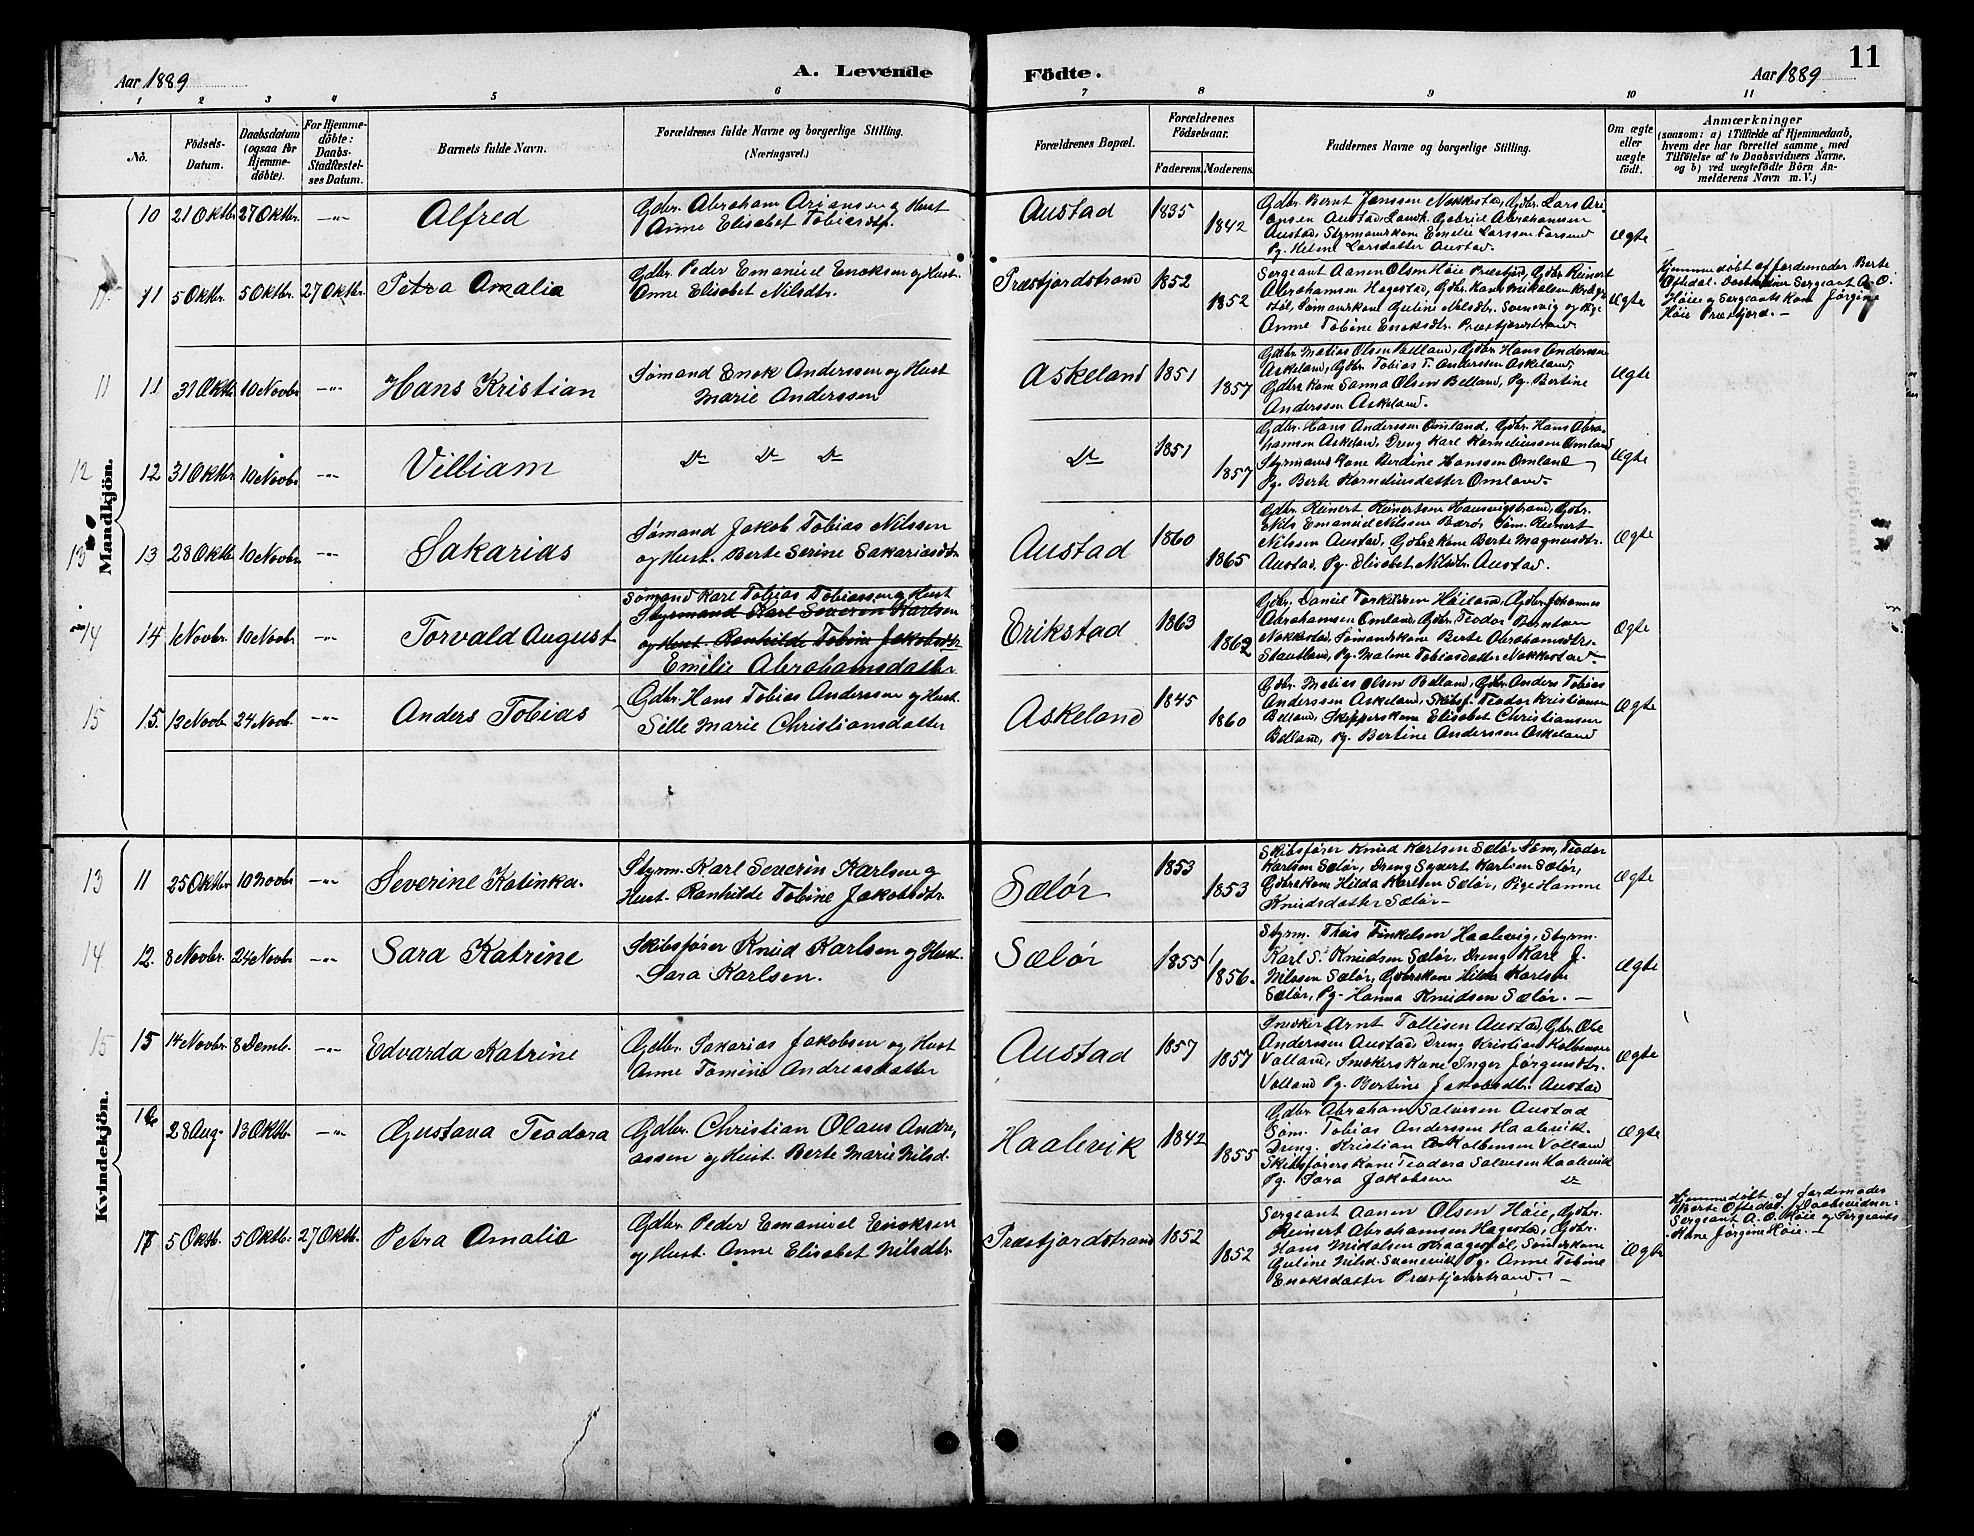 Aar 1889 A. Levende Födte. Aar 1889 11
1 2 3 4 5 6 7 8 9 10 11
No.
Födsels-
Datum.
Daabsdatum
(ogsaa for
Hjemme-
döbte).
For Hjemme-
döbte:
Daabs-
Stadfæstel-
ses Datum.
Barnets fulde Navn.
Forældrenes fulde Navne og borgerlige Stilling.
(Næringsvei.)
Forældrenes Bopæl.
Forældrenes
Födselsaar.
Faderens. Moderens.
Faddernes Navne og borgerlige Stilling.
Om ægte
eller
uægte
födt.
Anmærkninger
(saasom: a) i Tilfælde af Hjemmedaab,
hvem der har forrettet samme, med
Tilföielse af to Daabsvidners Navne,
og b) ved uægtefödte Börn An-
melderens Navn m. V.)
Mandkjön.
10 21 Oktbr. 27 Oktbr. -"- Alfred
Gdbr. Abraham Ariansen og Hust
Anne Elisabet Tobiasdtr.
Austad 1835 1842
Gdbr. Bernt Jonssen Nokkestad, Gdbr. Lars Ari-
ansen Austad, Landh. Gabriel Abrahamsen
Austad, Styrmanskone Emelie Larssen Farsund
Pg. Helene Larsdatter Austad.
Ægte
11 5 Oktbr. 5 Oktbr. 27 Oktbr. Petra Amalia
Gdbr. Peder Emanuel Enoksen og Hust.
Anne Elisabet Nilsdtr.
Præstfjordstrand 1852 1852
Sergeant Aanen Olsen Höie Præstfjord, Gdbr. Reinert
Abrahamsen Hagestad, Gdbr. Hans Mikalsen Kraage-
stöl, Sömandskone Guline Nilsdtr. Svennevig og Pg.
Anne Tobine Enoksdtr. Præstfjordstrand.
Ægte
Hjemmedöbt af Jordemoder Berte
Oftedal. Daabsvidner Sergeant A. O.
Höie og Sergeants Kone Jörgine
Höie Præstfjord. -
11 11 31 Oktbr. 10 Novbr -"- Hans Kristian
Sømand Enok Anderssen og Hust
Marie Anderssen
Askeland 1851 1857
Gdbr. Matias Olsen Belland, Gdbr. Hans Anderssen
Askeland, Gdbr. Tobias T. Anderssen Askeland,
Gdbrs kone Sanna Olsen Belland, Pg. Bertine
Anderssen Askeland.
Ægte
12 12 31 Oktbr. 10 Novbr -"- Villiam
Do Do Do
Do 1851 1857
Gdbr. Hans Anderssen Omland, Gdbr. Hans Abra-
hamsen Askeland, Dreng Karl Korneliussen Omland
Styrmands kone Berdine Hanssen Omland
Pg. Berte Korneliusdatter Omland.
Ægte
13 13 28 Oktbr 10 Novbr. -"- Sakarias
Sømand Jakob Tobias Nilssen
og Hust. Berte Serine Sakariasdtr.
Austad 1860 1865
Gdbr. Reinert Reinertsen Hausvigstrand, Gdbr.
Nils Emanuel Nilssen Barø, Søm. Reinert
Nilssen Austad, Gdbrskone Berte Magnusdtr.
Austad, Pg. Elisabet Nilsdtr. Austad.
Ægte
14 14 1 Novbr. 10 Novbr. -"- Torvald August
Sømand Karl Tobias Tobiassen og Hust
Styrmand Karl Severin Karlsen
og Hust. Ranhilde Tobine Jakobsdtr
Emilie Abrahamsdatter
Erikstad 1863 1862
Gdbr. Daniel Torkildsen Höiland, Gdbr. Johannes
Abrahamsen Omland, Gdbr. Teodor Berntsen
Nokkestad, Sømandskone Berte Abrahamsdtr.
Stautland, Pg. Malene Tobiasdatter Nokkestad
Ægte
15 15. 13 Novb. 24 Novb. -"- Anders Tobias
Gdbr. Hans Tobias Anderssen og Hust.
Sille Marie Christiansdatter
Askeland 1845 1860
Gdbr. Matias Olsen Belland, Gdbr. Anders Tobias
Andersen Askeland, Skibsf. Teodor Kristiansen
Belland, Skipperskone Elisabet Christiansen
Belland, Pg. Bertine Anderssen Askeland
Ægte
Kvindekjön.
13 11 25 Oktbr 10 Novbr -"- Severine Katinka.
Styrm. Karl Severin Karlsen og
Hust. Ranhilde Tobine Jakobsdtr.
Sælør 1853 1853
Skibsfører Knud Karlsen Sælør, Søm, Teodor
Karlsen Sælør, Dreng Syvert Karlsen Sælør,
Gdbrskone Hilda Karlsen Sælør, Pige Hanne
Knudsdatter Sælør -
Ægte
14 12. 8 Novbr. 24 Novbr -"- Sara Katrine
Skibsfører Knud Karlsen og Hust.
Sara Karlsen.
Sælør 1855 1856.
Styrm. Theis Finkelsen Haalevig, Styrm.
Karl S. Knudsen Sælør, Dreng Karl J.
Nilssen Sælør, Gdbrskone Hilda Karlsen
Sælør, Pg. Hanna Knudsen Sælør. -
Ægte
15 15 14 Novbr. 8 Decmb. -"- Edvarda Katrine
Gdbr. Sakarias Jakobsen og Hust
Anne Tomine Andreasdatter
Austad 1857 1857
Snedker Arnt Tollisen Austad, Gbr. Ole
Anderssen Austad, Dreng Kristian Kolbensen
Volland, Snedkers Kone Inger Jørgensdtr.
Volland Pg. Bertine Jakobsdtr. Austad
Ægte
16 28 Aug. 13 Oktb. -"- Gustava Teodora
Gdbr. Christian Olaus Andre-
assen og Hust. Berte Marie Nilsd.
Haalevik 1842 1855
Gdbr. Abraham Salvesen Austad
Søm. Tobias Anderssen Haalevik.
Dreng. Kristian Kolbensen Volland
Skibsførers Kone Teodora Salvesen Haalevik
Pg. Sara Jakobsen Do
Ægte
17 5 Oktb. 5 Oktb. 27 Oktb. Petra Amalia
Gdbr. Peder Emanuel Enoksen
og Hust. Anne Elisabet Nilsdtr.
Præstfjordstrand 1852 1852
Sergeant Aanen Olsen Höie, Gdbr.
Reinert Abrahamsen Hagestad, Gdbr.
Hans Mikalsen Kraagestøl, Sømdskone
Guline Nilsd. Svennevik, Pg. Anne Tobine
Enoksdatter Præstfjordstrand. -
Ægte
Hjemmedöbt af Jordemoder
Berte Oftedal, Daabsvidner
Sergeant A. O. Höie og Sergeants
Kone Jörgine Höie. -